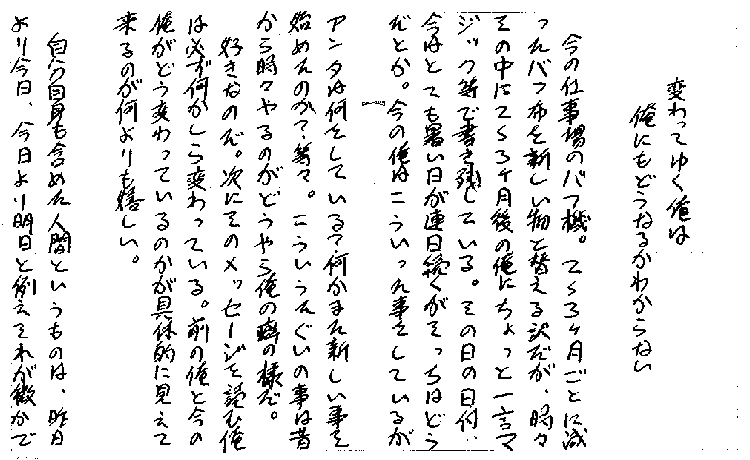 変わってゆく俺は
俺にもどうなるかわからない
今の仕事場のバフ機。2〜3ヶ月ごとに減
ったバフ布を新しい物と替える訳だが、時々
その中に2〜3ヶ月後の俺にちょっと一言マ
ジック等で書き残している。その日の日付、
今はとても暑い日が連日続くがそっちはどう
だとか。今の俺はこういった事をしているが
アンタは何をしている?何かまた新しい事を
始めたのか?等々。こういうたぐいの事は昔
から時々やるのがどうやら俺の癖の様だ。
好きなのだ。次にそのメッセージを読む俺
は必ず何かしら変わっている。前の俺と今の
俺がどう変わっているのかが具体的に見えて
来るのが何よりも嬉しい。
自分自身も含めた人間というものは、昨日
より今日、今日より明日と例えそれが微かで